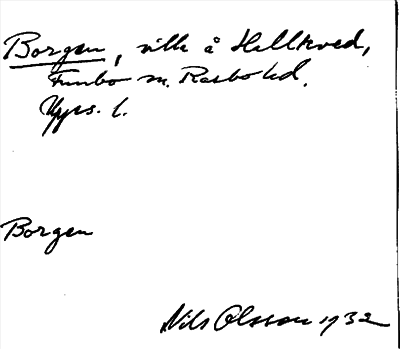 Borgen, villa å Hällkved,
Funbo sn. Rasbo hd.
Upps. l.
Borgen
Nils Olsson 1932